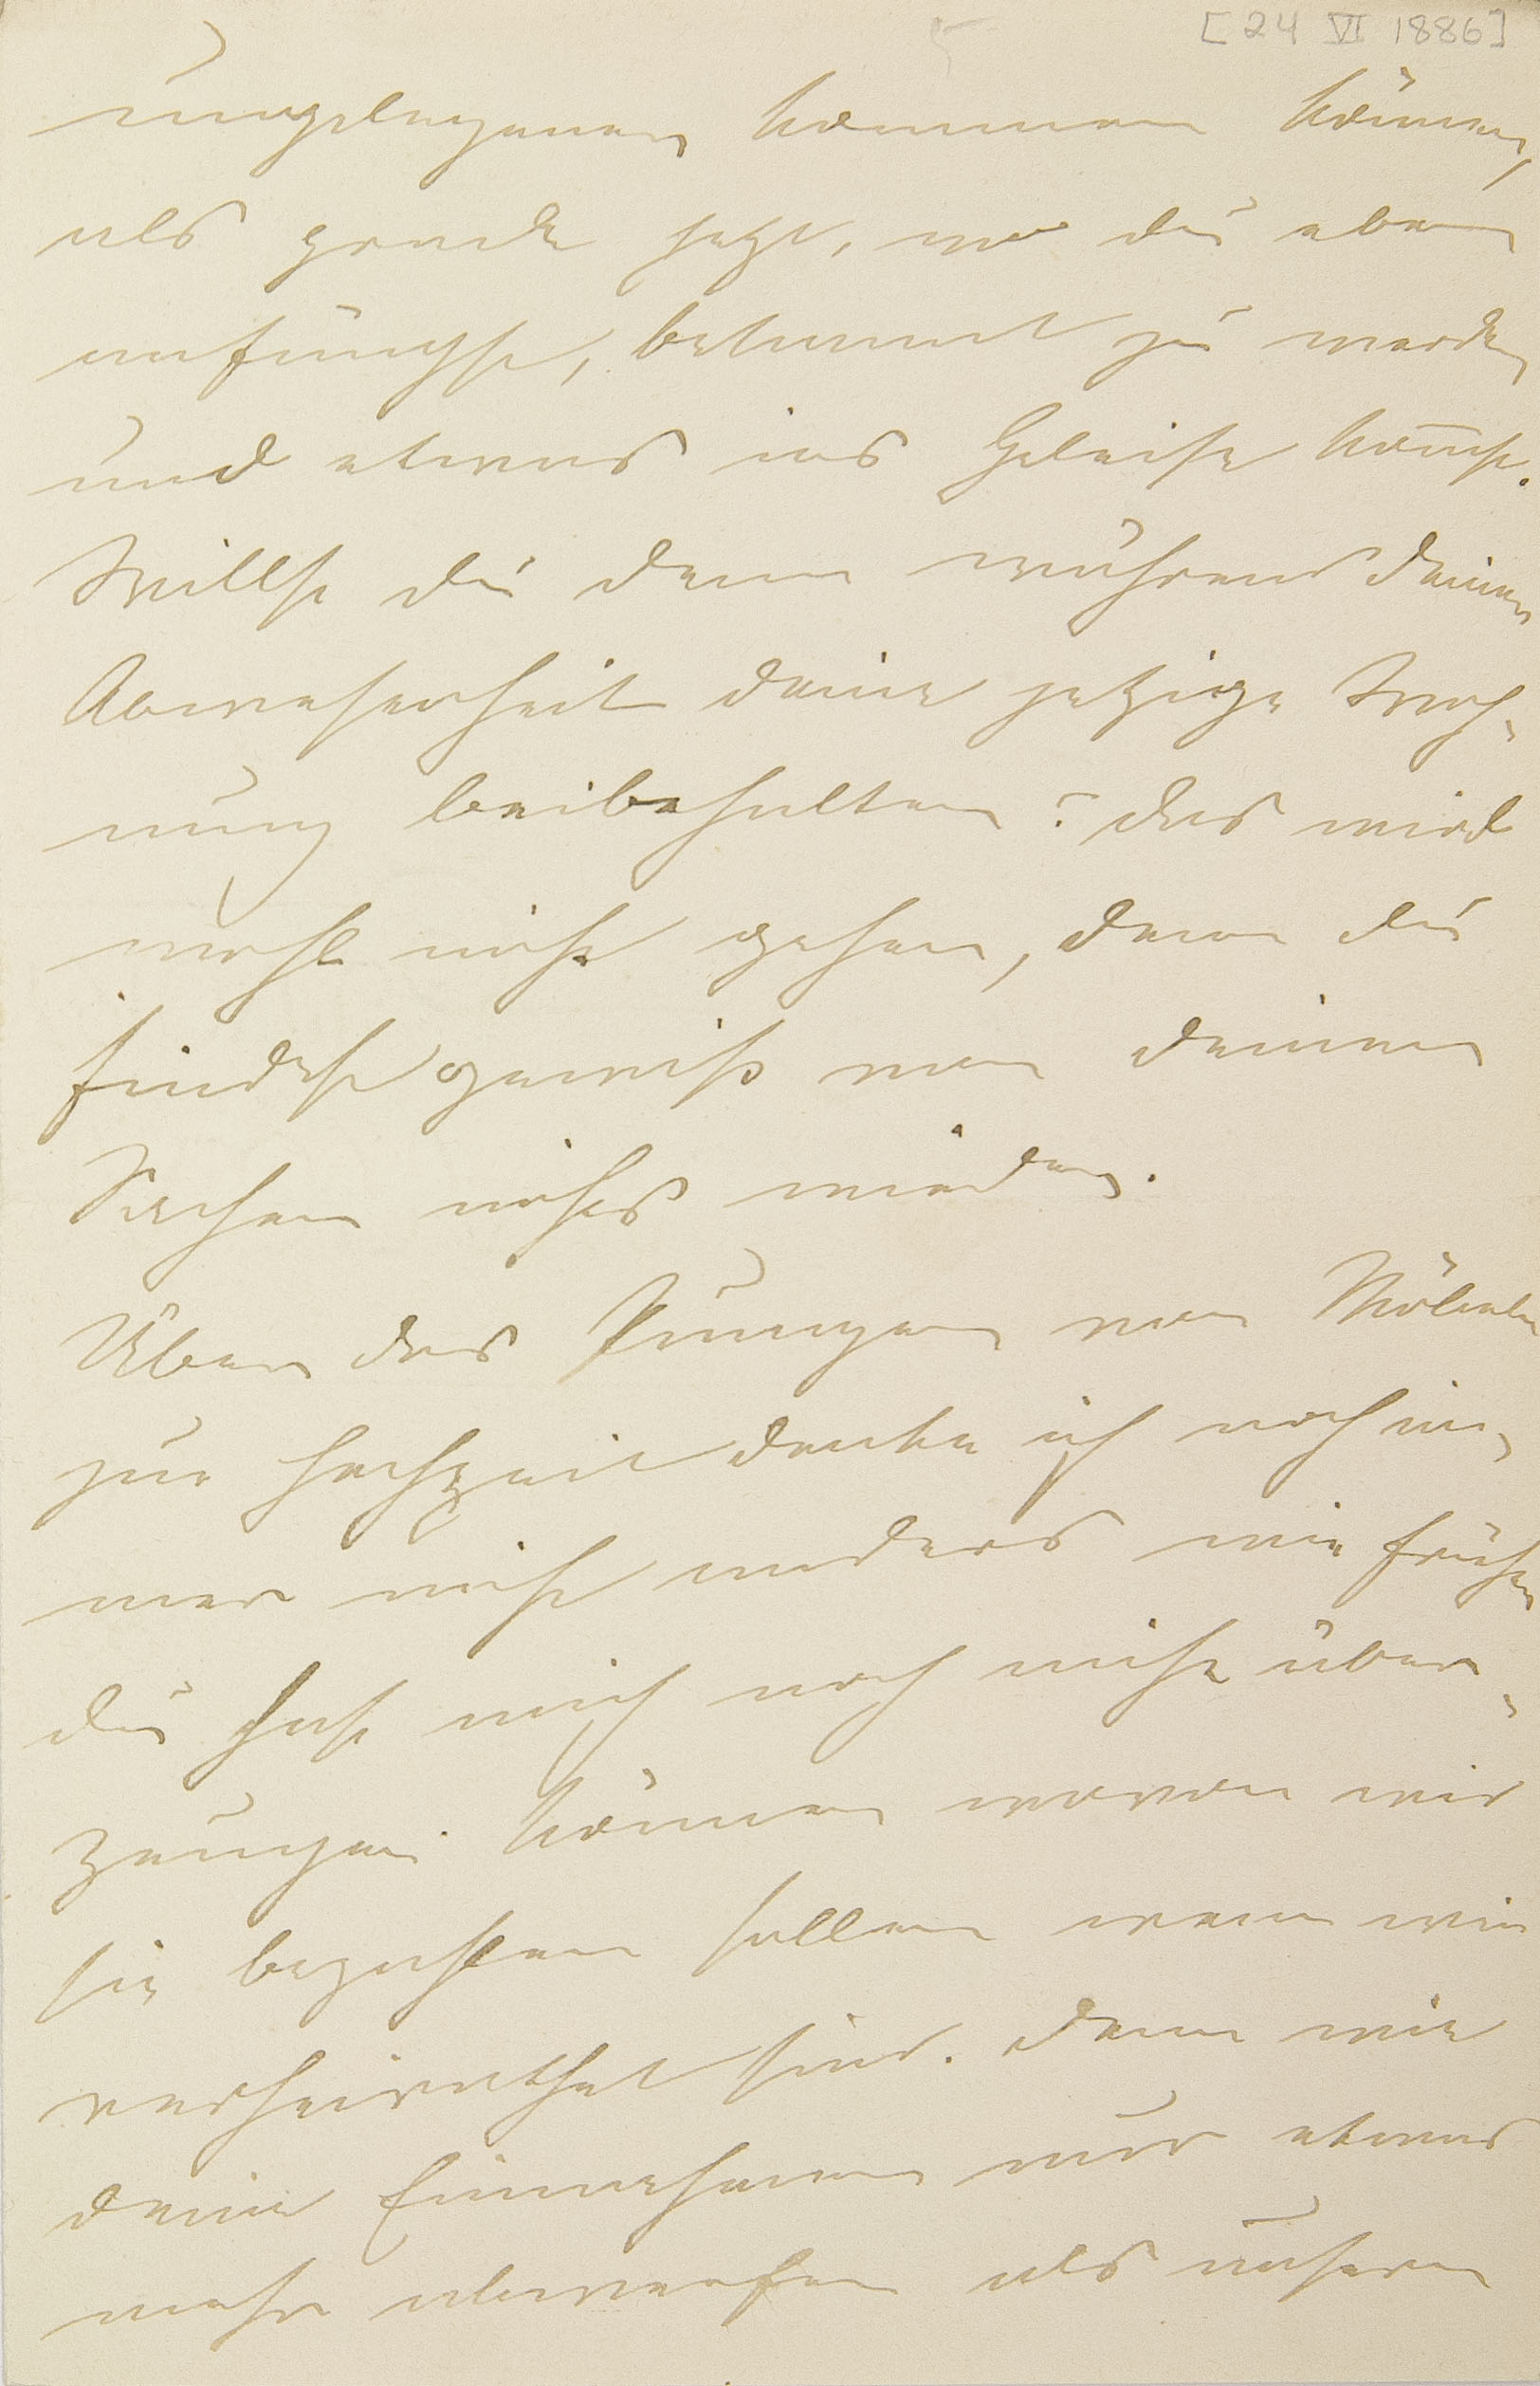 [24 VI 1886]
5
ungelegener kommen können,
als grade jetzt, wo du eben
anfängst, bekannt zu werden
und etwas ins Geleise kom̄st.
Willst du denn während deiner
Abwesenheit deine jetzige Woh-
nung beibehalten? das wird
wohl nicht gehen, denn du
findest gewiß von deinen
Sachen nichts wieder.
Über das Pumpen von Möbeln
zur Hochzeit denke ich noch im-
mer nicht anders wie früher
du hast mich noch nicht über-
zeugen können wovon wir
sie bezahlen sollen wenn wir
verheirathet sind. denn wie
deine Einnahmen nur etwas
mehr abwerfen als unsern